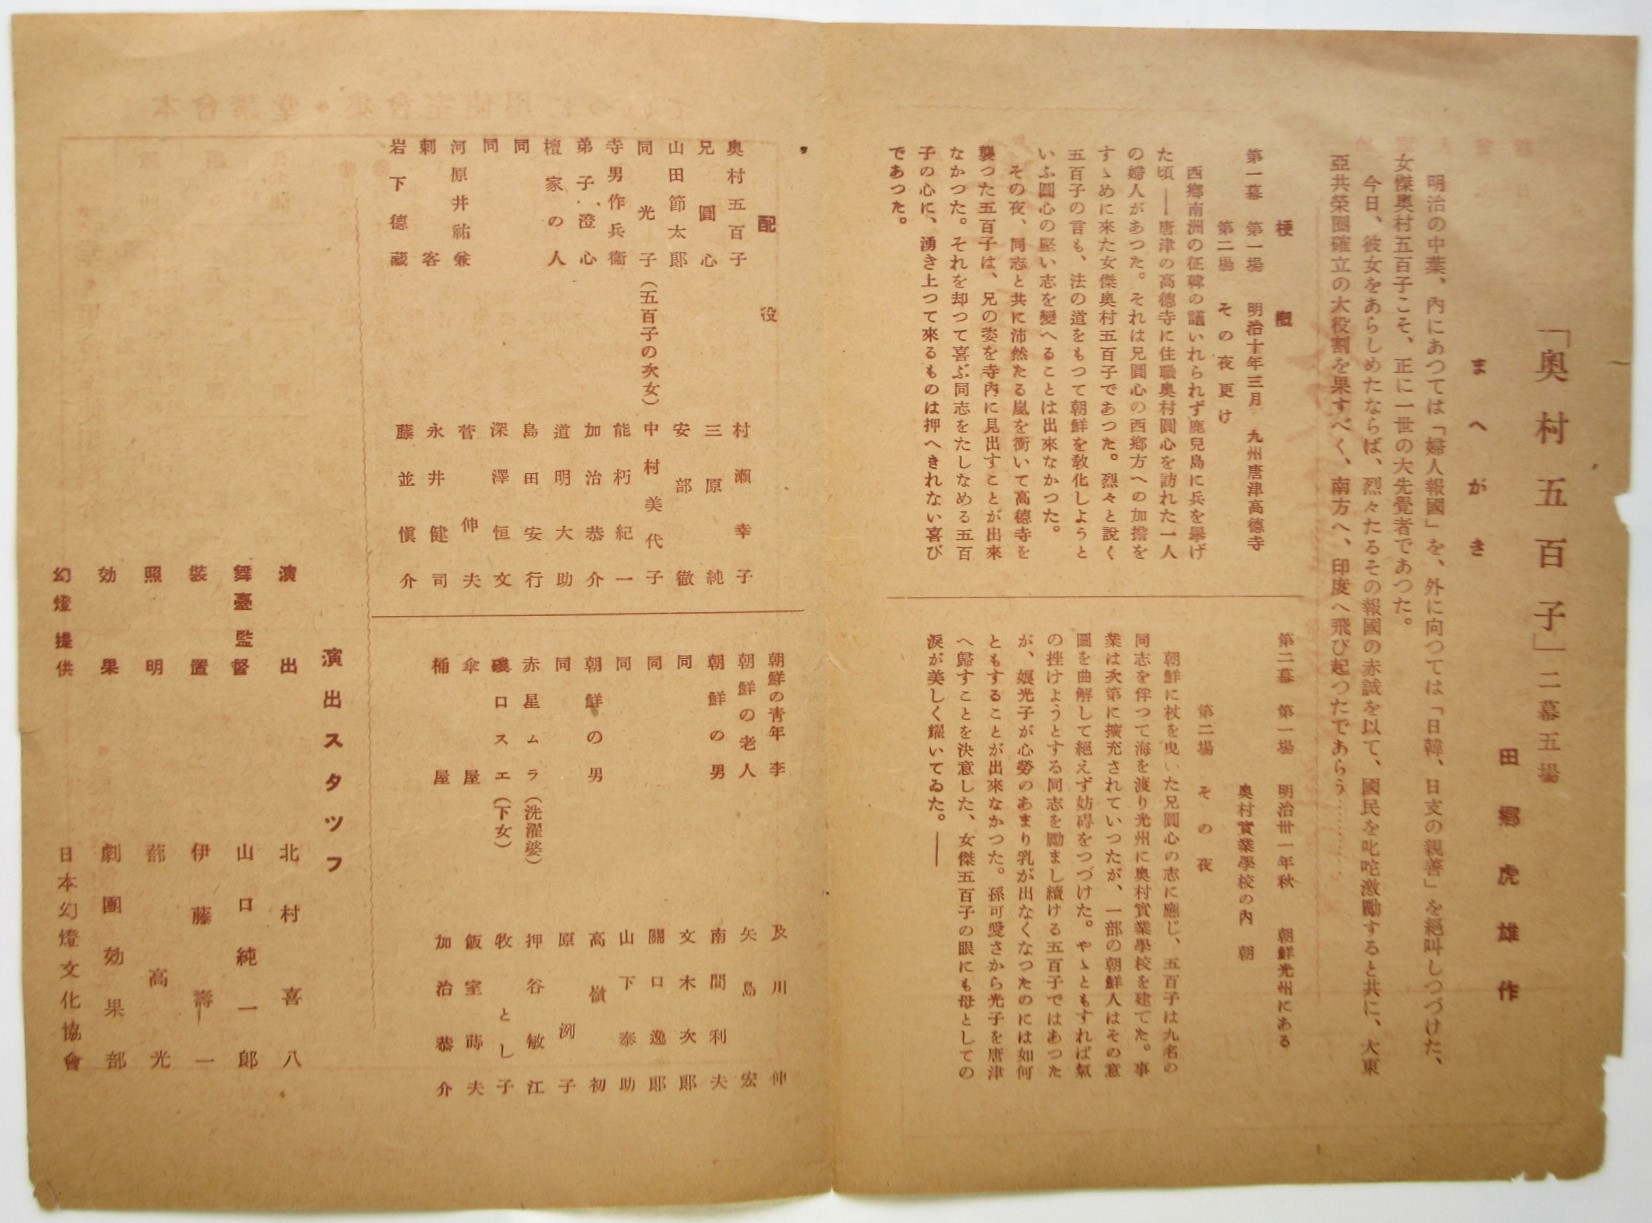 「奥村五百子」二幕五場
田郷虎雄作
まへがき
明治の中葉、內にあつては「婦人報國」を、外に向つては「日韓、日支の親善」を絕叫しつづけた、
女傑奥村五百子こそ、正に一世の大先覺者であつた。
今日、彼女をあらしめたならば、烈々たるその報國の赤誠を以て、國民を叱咤激勵すると共に、大東
亞共榮圈確立の大役割を果すべく、南方へ、印度へ飛び起つたであらう…………
梗概
第一幕 第一場 明治十年三月 九州唐津高德寺
第二場 その夜更け
西鄉南洲の征韓の議いれられず鹿兒島に兵を擧げ
た頃――唐津の高德寺に住職奥村圓心を訪れた一人
の婦人があつた。それは兄圓心の西鄉方への加擔を
すゝめに來た女傑奥村五百子であつた。烈々と說く
五百子の言も、法の道をもつて朝鮮を敎化しようと
いふ圓心の堅い志を變へることは出來なかつた。
その夜、同志と共に沛然たる嵐を衝いて高德寺を
襲つた五百子は、兄の姿を寺內に見出すことが出來
なかつた。それを却つて喜ぶ同志をたしなめる五百
子の心に、湧き上つて來るものは押へきれない喜び
であつた。
第二幕 第一場 明治卅一年秋 朝鮮光州にある
奥村實業學校の內 朝
第二場 その夜
朝鮮に杖を曳いた兄圓心の志に應じ、五百子は九名の
同志を伴つて海を渡り光州に奥村實業學校を建てた。事
業は次第に擴充されていつたが、一部の朝鮮人はその意
圖を曲解して絕えず妨碍をつづけた。やゝともすれば氣
の挫けようとする同志を勵まし續ける五百子ではあつた
が、孃光子が心勞のあまり乳が出なくなつたのには如何
ともすることが出來なかつた。孫可愛さから光子を唐津
へ歸すことを決意した、女傑五百子の眼にも母としての
淚が美しく耀いてゐた。――
配役
奥村五百子 村瀨幸子
兄圓心 三原純
山田節太郎 安部徹
同光子(五百子の次女) 中村美代子
寺男作兵衞 能朽紀一
弟子、澄心 加治恭介
檀家の人 道明大助
同 島田安行
同 深澤恒文
河原井祐兼 菅伸夫
刺客 永井健司
岩下德藏 藤並愼介
朝鮮の靑年 李 及川伸
朝鮮の老人 矢島宏
朝鮮の男 南間利夫
同 文木次郎
同 關口逸郎
同 山下泰助
朝鮮の男 高嶺初
同 原洌子
赤星ムラ(洗濯婆) 押谷敏江
磯ロスエ(下女) 牧とし子
傘屋 飯室蒔夫
桶屋 加治恭介
演出スタツフ
演出 北村喜八
舞臺監督 山口純一郎
裝置 伊藤壽一
照明 高光
効果 劇團効果部
幻燈提供 日本幻燈文化協會